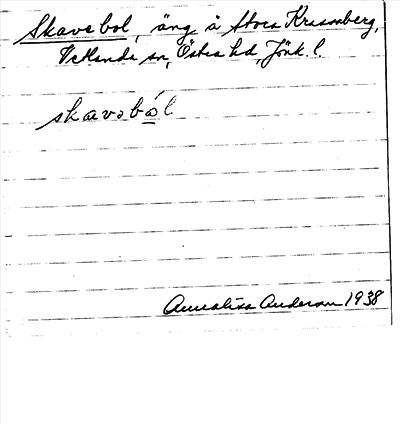 Skavebol, äng å Stora Krusenberg,
Vetlanda sn, Östra hd, Jönk. l.
skavəbo̱l
Annalisa Anderson 1938